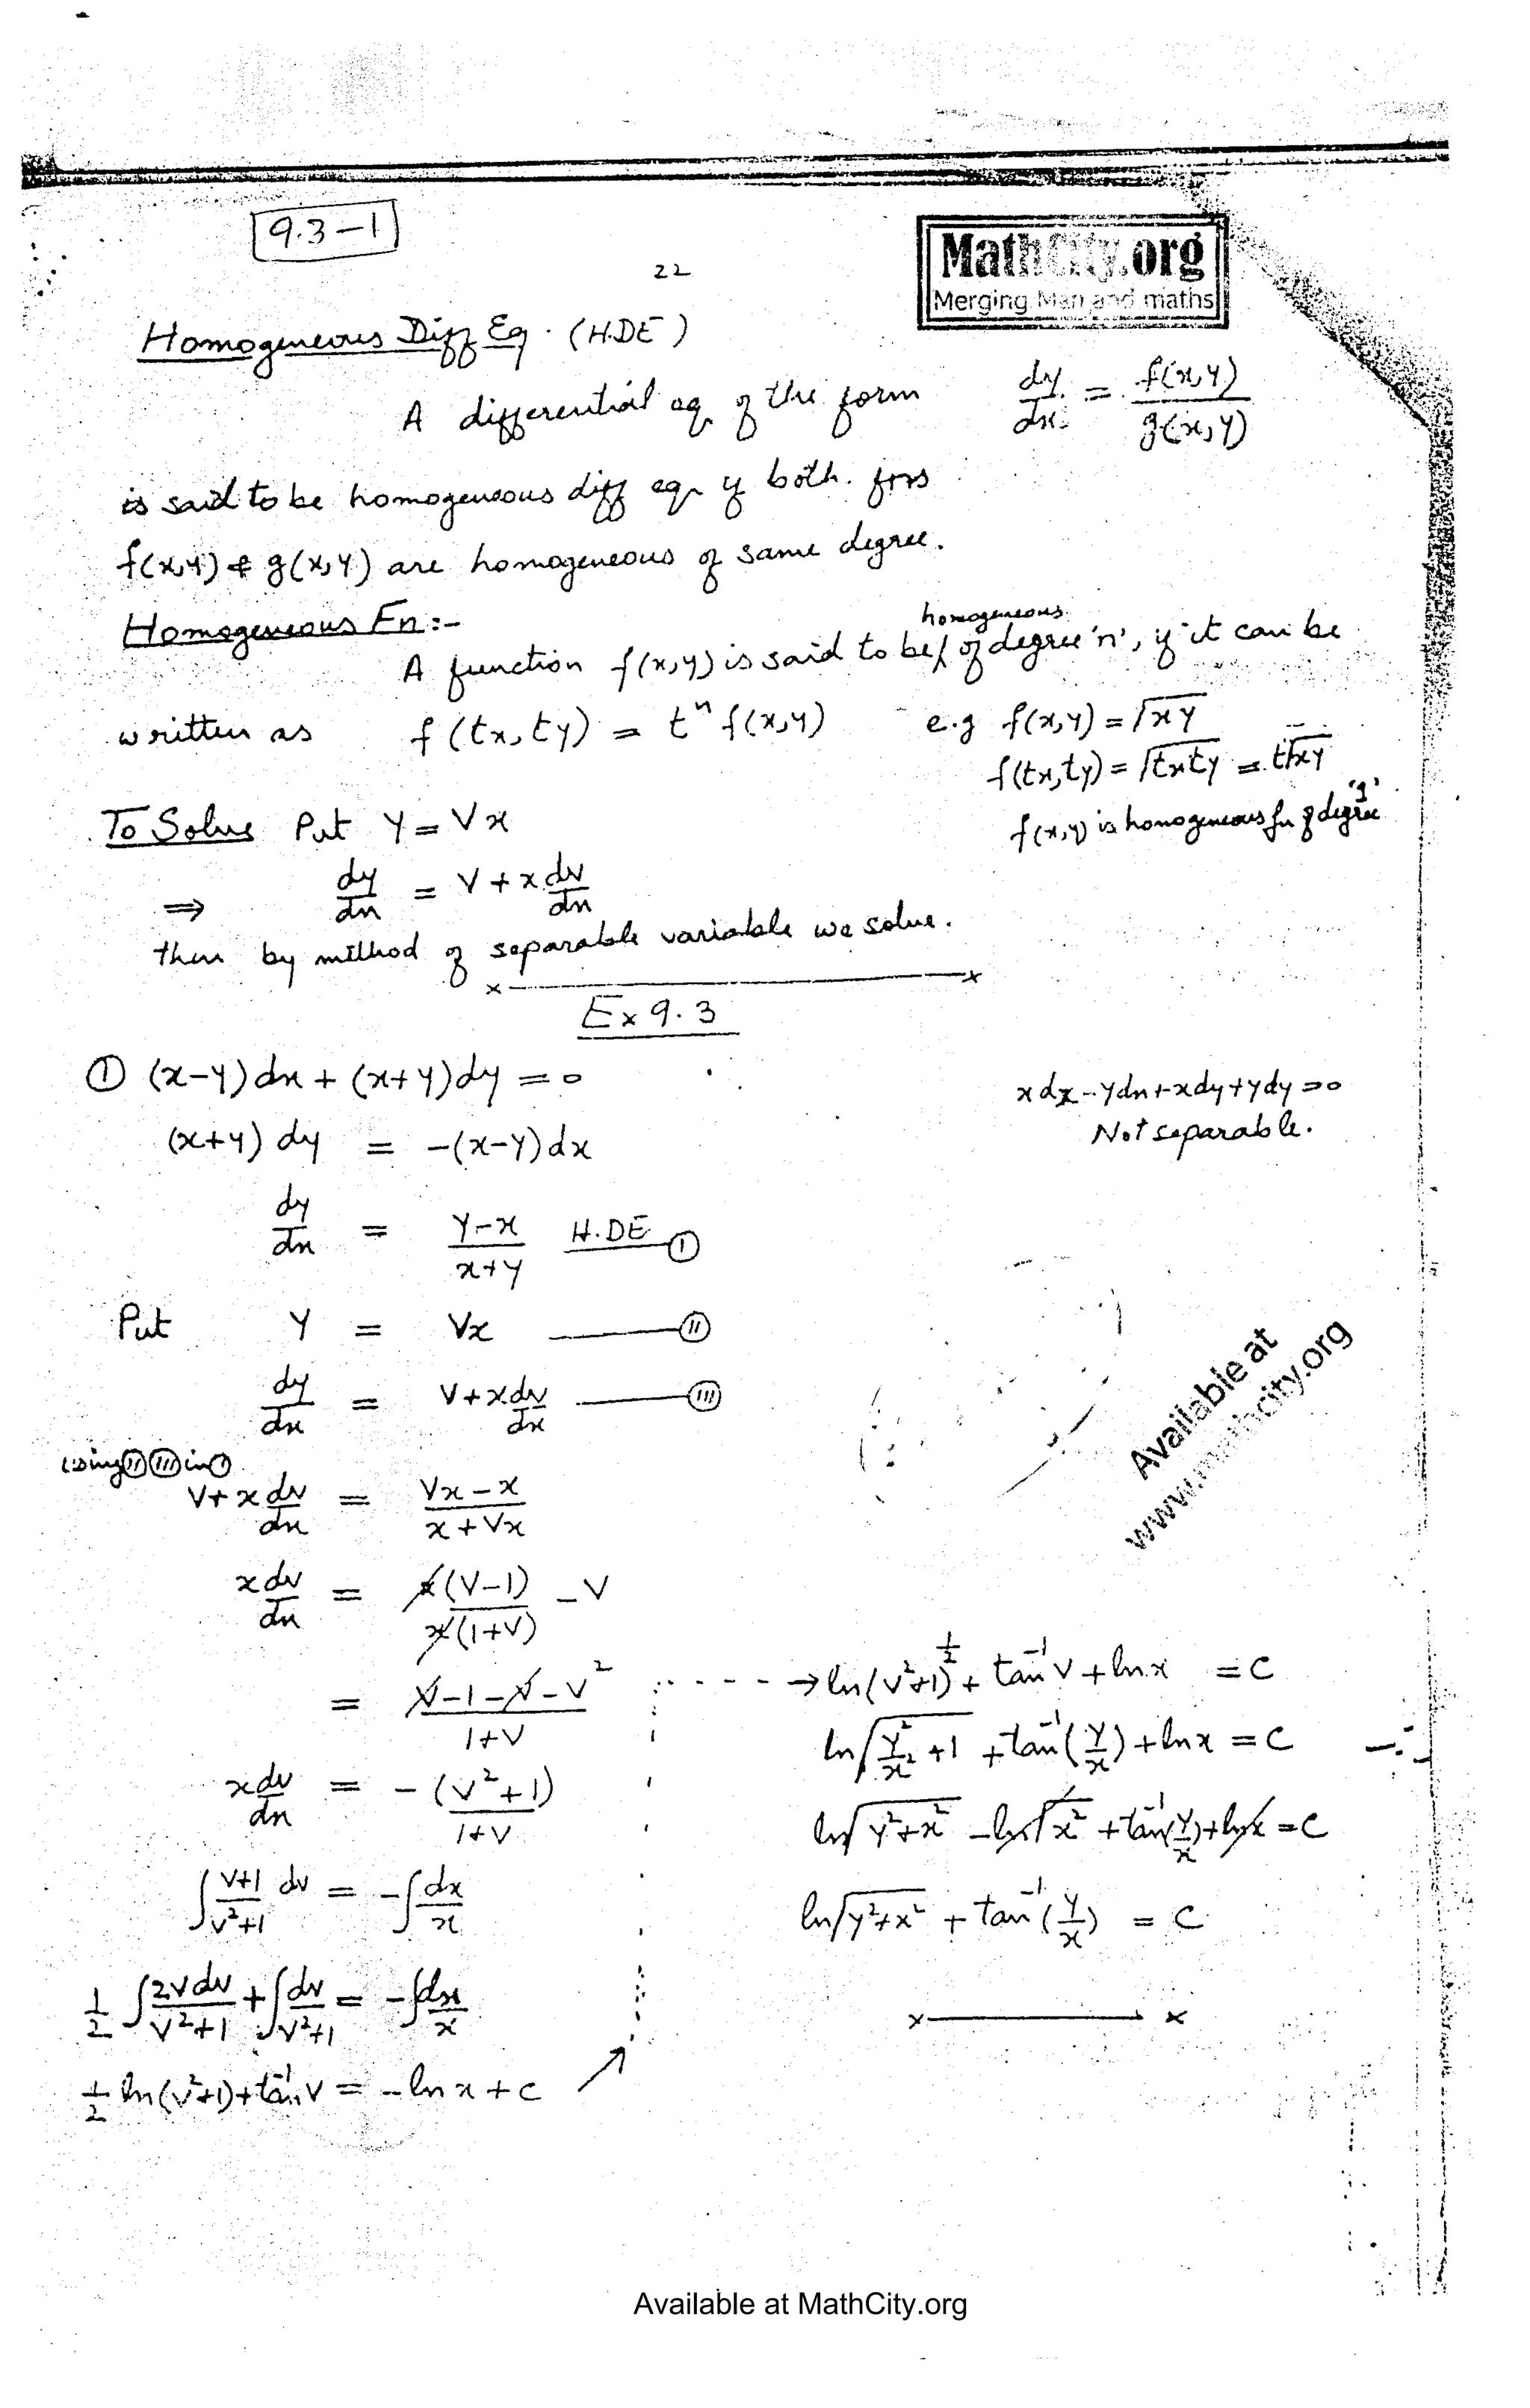 9.3-1
22
MathCity.org
Merging Man and maths
Homogeneous Diff Eq. (H.DE)
A differential eq. of the form dy/dx = f(x,y)/g(x,y)
is said to be homogeneous diff eq. if both fns
f(x,y) & g(x,y) are homogeneous of same degree.
Homogeneous Fn:-
A function f(x,y) is said to be homogeneous of degree 'n', if it can be
written as f(tx,ty) = t^n f(x,y) e.g f(x,y) = √xy
f(tx,ty) = √txty = t√xy
f(x,y) is homogeneous fn of degree '1'
To Solve Put y = Vx
⇒ dy/dx = V + x dv/dx
then by method of separable variable we solve.
x————x
Ex 9.3
① (x-y)dx + (x+y)dy = 0
xdx - ydx + xdy + ydy = 0
Not separable.
(x+y) dy = -(x-y)dx
dy/dx = (y-x)/(x+y) H.DE ①
Put y = Vx ——— ⑪
dy/dx = V + x dv/dx ——— ⑪I
using ⑪ ⑪I in ①
V + x dv/dx = (Vx - x)/(x + Vx)
x dv/dx = x(V-1)/x(1+V) - V
= (V-1-V-V²)/(1+V)
x dv/dx = -(V²+1)/(1+V)
∫ (V+1)/(V²+1) dv = -∫ dx/x
1/2 ∫ 2Vdv/(V²+1) + ∫ dv/(V²+1) = -∫ dx/x
1/2 ln(V²+1) + tan⁻¹V = -ln x + c
→ ln(V²+1)^1/2 + tan⁻¹V + ln x = C
ln√(y²/x² + 1) + tan⁻¹(y/x) + ln x = C
ln√(y²+x²) - ln√x² + tan⁻¹(y/x) + ln x = C
ln√(y²+x²) + tan⁻¹(y/x) = C
x————x
Available at
www.mathcity.org
Available at MathCity.org